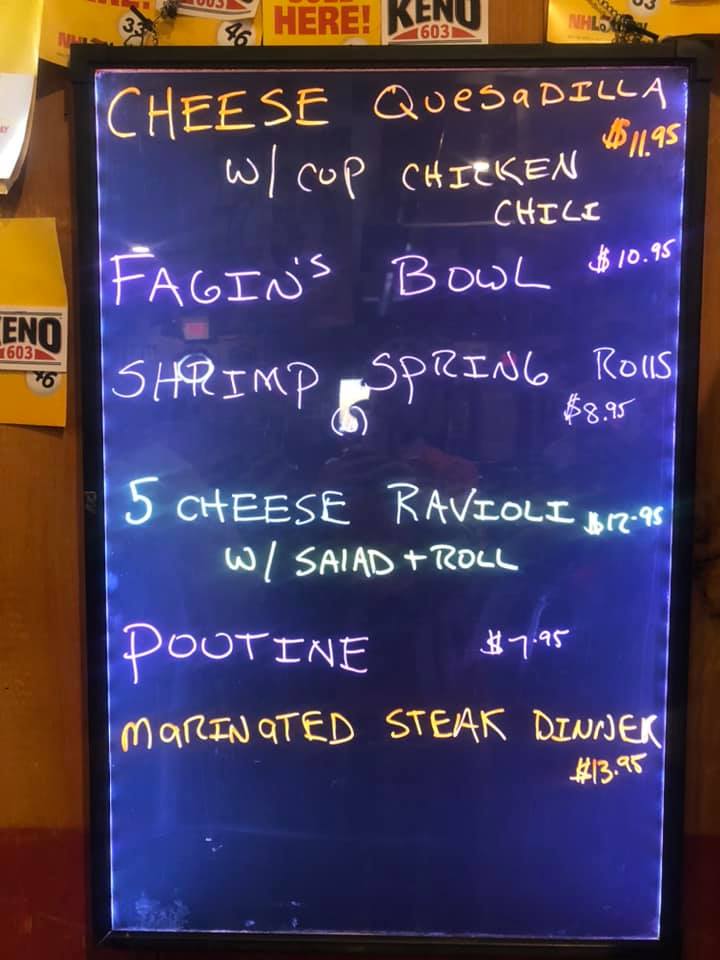 HERE!
KENO
603
33
46
NHLo
CHEESE QUESADILLA
$11.95
W/ CUP CHICKEN
CHILI
FAGIN'S BOWL $10.95
SHRIMP SPRING ROLLS
$8.95
(6)
5 CHEESE RAVIOLI $12.95
W/ SALAD + ROLL
POUTINE $7.95
MARINATED STEAK DINNER
$13.95
KENO
603
46